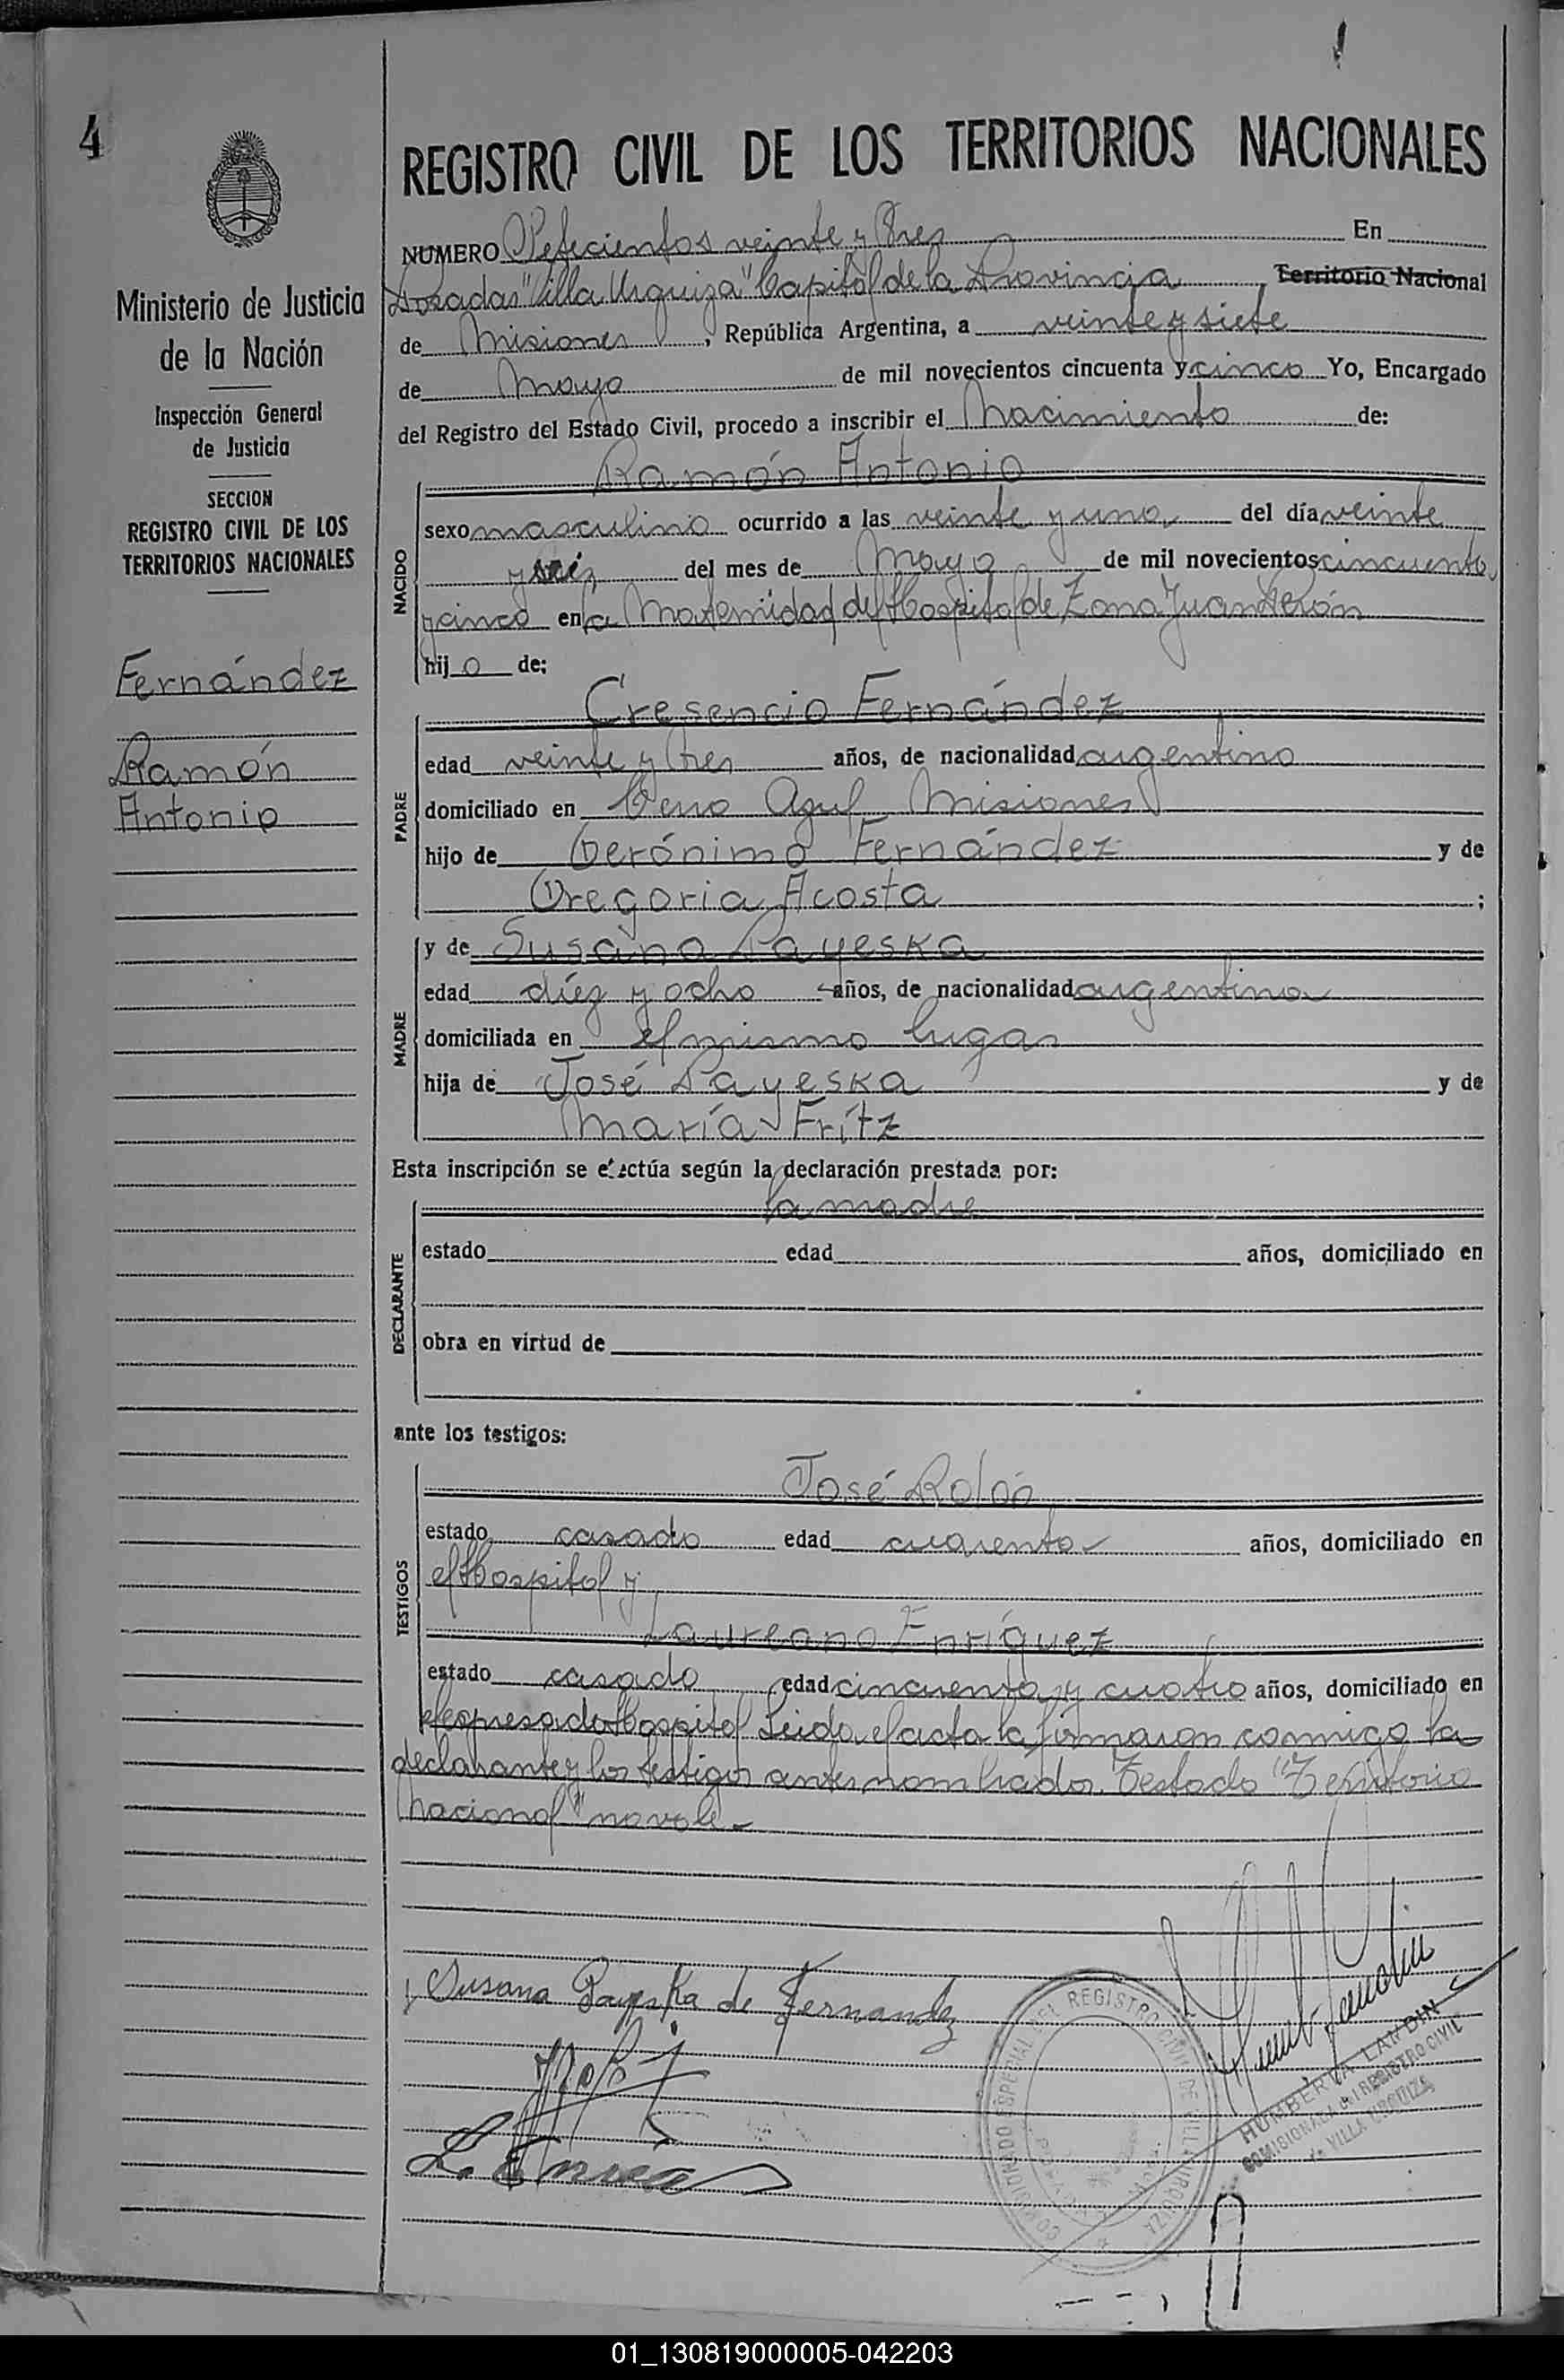 4
REGISTRO CIVIL DE LOS TERRITORIOS NACIONALES
Ministerio de Justicia
de la Nación
Inspección General
de Justicia
SECCION
REGISTRO CIVIL DE LOS
TERRITORIOS NACIONALES
Fernández
Ramón
Antonio
NUMERO Setecientos veinte y tres En
Posadas "Villa Urquiza" Capital de la Provincia Territorio Nacional
de Misiones, República Argentina, a veinte y siete
de Mayo de mil novecientos cincuenta y cinco Yo, Encargado
del Registro del Estado Civil, procedo a inscribir el Nacimiento de:
NACIDO
Ramón Antonio
sexo masculino ocurrido a las veinte y una del día veinte
y seis del mes de Mayo de mil novecientos cincuenta
y cinco en la Maternidad del Hospital de Zona Juan Perón
hijo de:
PADRE
Cresencio Fernández
edad veinte y tres años, de nacionalidad argentino
domiciliado en Cerro Azul Misiones
hijo de Gerónimo Fernández y de
Gregoria Acosta ;
MADRE
y de Susana Payeska
edad diez y ocho años, de nacionalidad argentina
domiciliada en el mismo lugar
hija de José Payeska y de
María Fritz
Esta inscripción se efectúa según la declaración prestada por:
DECLARANTE
la madre
estado edad años, domiciliado en
obra en virtud de
ante los testigos:
TESTIGOS
José Rolón
estado casado edad cuarenta años, domiciliado en
el Hospital y
Laureano Enríquez
estado casado edad cincuenta y cuatro años, domiciliado en
el expresado Hospital Leida el acta la firmaron conmigo la
declarante y los testigos antes nombrados. Testado "Territorio
Nacional" no vale.-
Susana Payeska de Fernandez
COMISIONADO ESPECIAL DEL REGISTRO CIVIL DE VILLA URQUIZA
HUMBERTO A. LANDIN
COMISIONADO DEL REGISTRO CIVIL
de VILLA URQUIZA
01_130819000005-042203